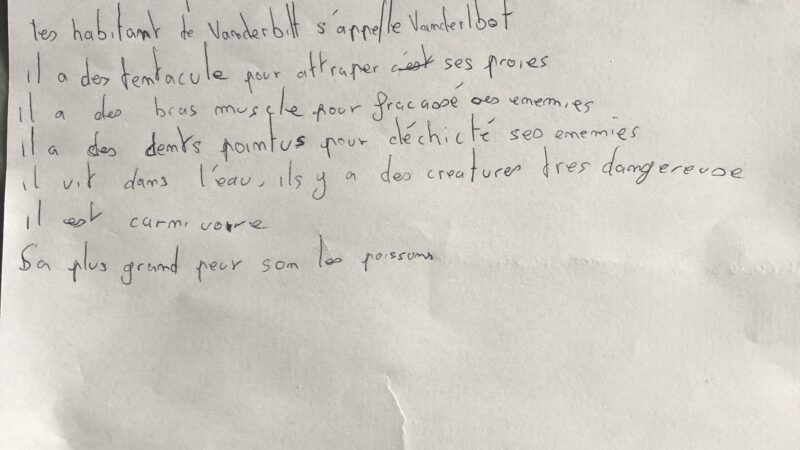 les habitant de Vanderbilt s'appelle Vanderlbot
il a des tentacule pour attraper c'est ses proies
il a des bras muscle pour fracassé ses enemies
il a des dents pointus pour déchicté ses enemies
il vit dans l'eau, ils y a des creatures tres dangereuse
il est carnivore
Sa plus grand peur son les poissons